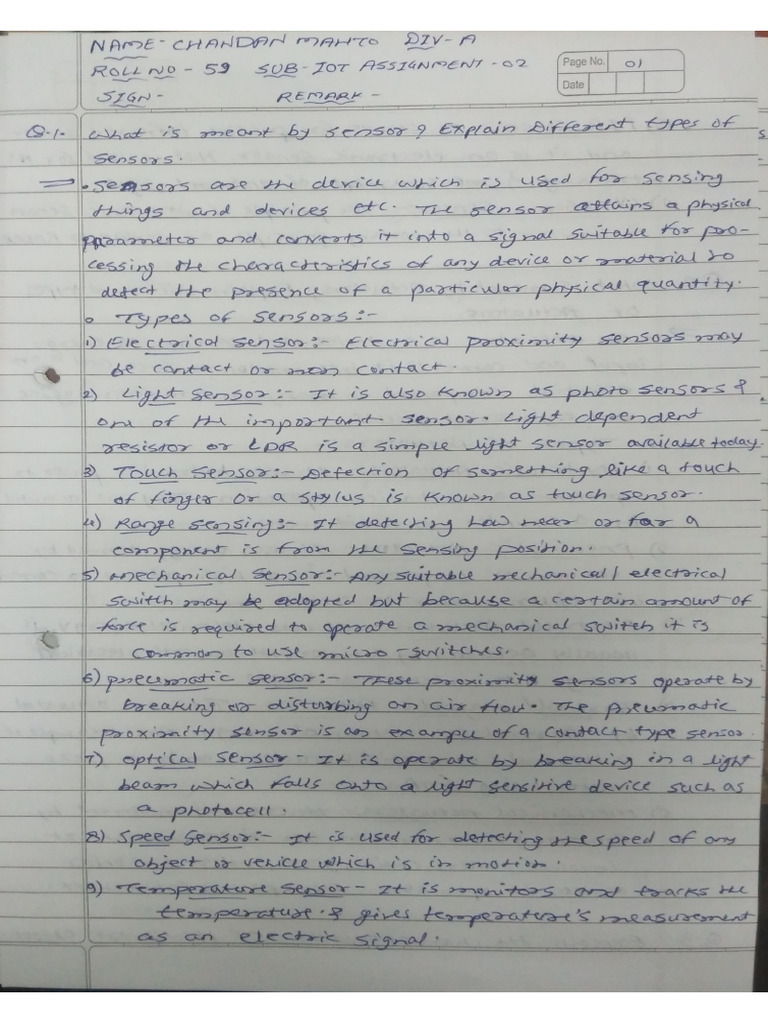 NAME- CHANDAN MAHTO DIV- A
ROLL NO - 59 SUB- IOT ASSIGNMENT - 02
Page No. 01
SIGN- REMARK -
Date
Q.1. What is meant by sensor? Explain Different types of
sensors.
• Sensors are the device which is used for sensing
things and devices etc. The sensor attains a physical
parameter and converts it into a signal suitable for pro-
cessing the characteristics of any device or material to
detect the presence of a particular physical quantity.
o Types of sensors:-
1) Electrical sensor:- Electrical proximity sensors may
be contact or non contact.
2) Light sensor:- It is also known as photo sensors &
one of the important sensor. Light dependent
resistor or LDR is a simple light sensor available today.
3) Touch sensor:- Detection of something like a touch
of finger or a stylus is known as touch sensor.
4) Range sensing:- It detecting how near or far a
component is from the sensing position.
5) Mechanical sensor:- Any suitable mechanical / electrical
switch may be adopted but because a certain amount of
force is required to operate a mechanical switch it is
common to use micro-switches.
6) Pneumatic sensor:- These proximity sensors operate by
breaking or disturbing an air flow. The pneumatic
proximity sensor is an example of a contact type sensor.
7) Optical sensor - It is operate by breaking in a light
beam which falls onto a light sensitive device such as
a photocell.
8) Speed Sensor:- It is used for detecting the speed of any
object or vehicle which is in motion.
9) Temperature sensor - It is monitors and tracks the
temperature. & gives temperature's measurement
as an electric signal.